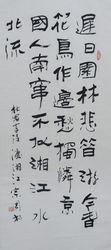 遲日園林悲昔游今春
花鳥作邊愁獨憐京
國人南竄不似湘江水
北流
杜審言詩渡湘江